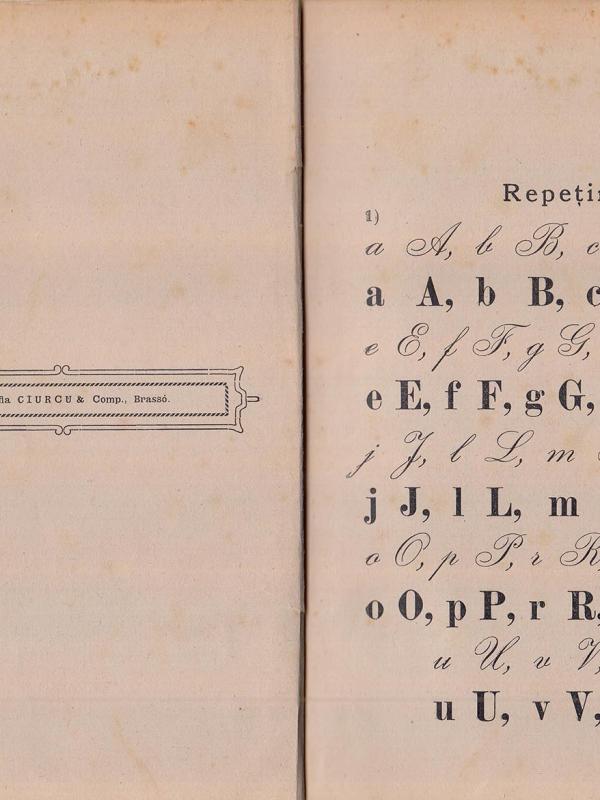 fia CIURCU & Comp., Brassó.
Repețir
1)
a A, b B, c
a A, b B, c
e E, f F, g G,
e E, f F, g G,
j J, l L, m
j J, l L, m
o O, p P, r R,
o O, p P, r R,
u U, v V,
u U, v V,